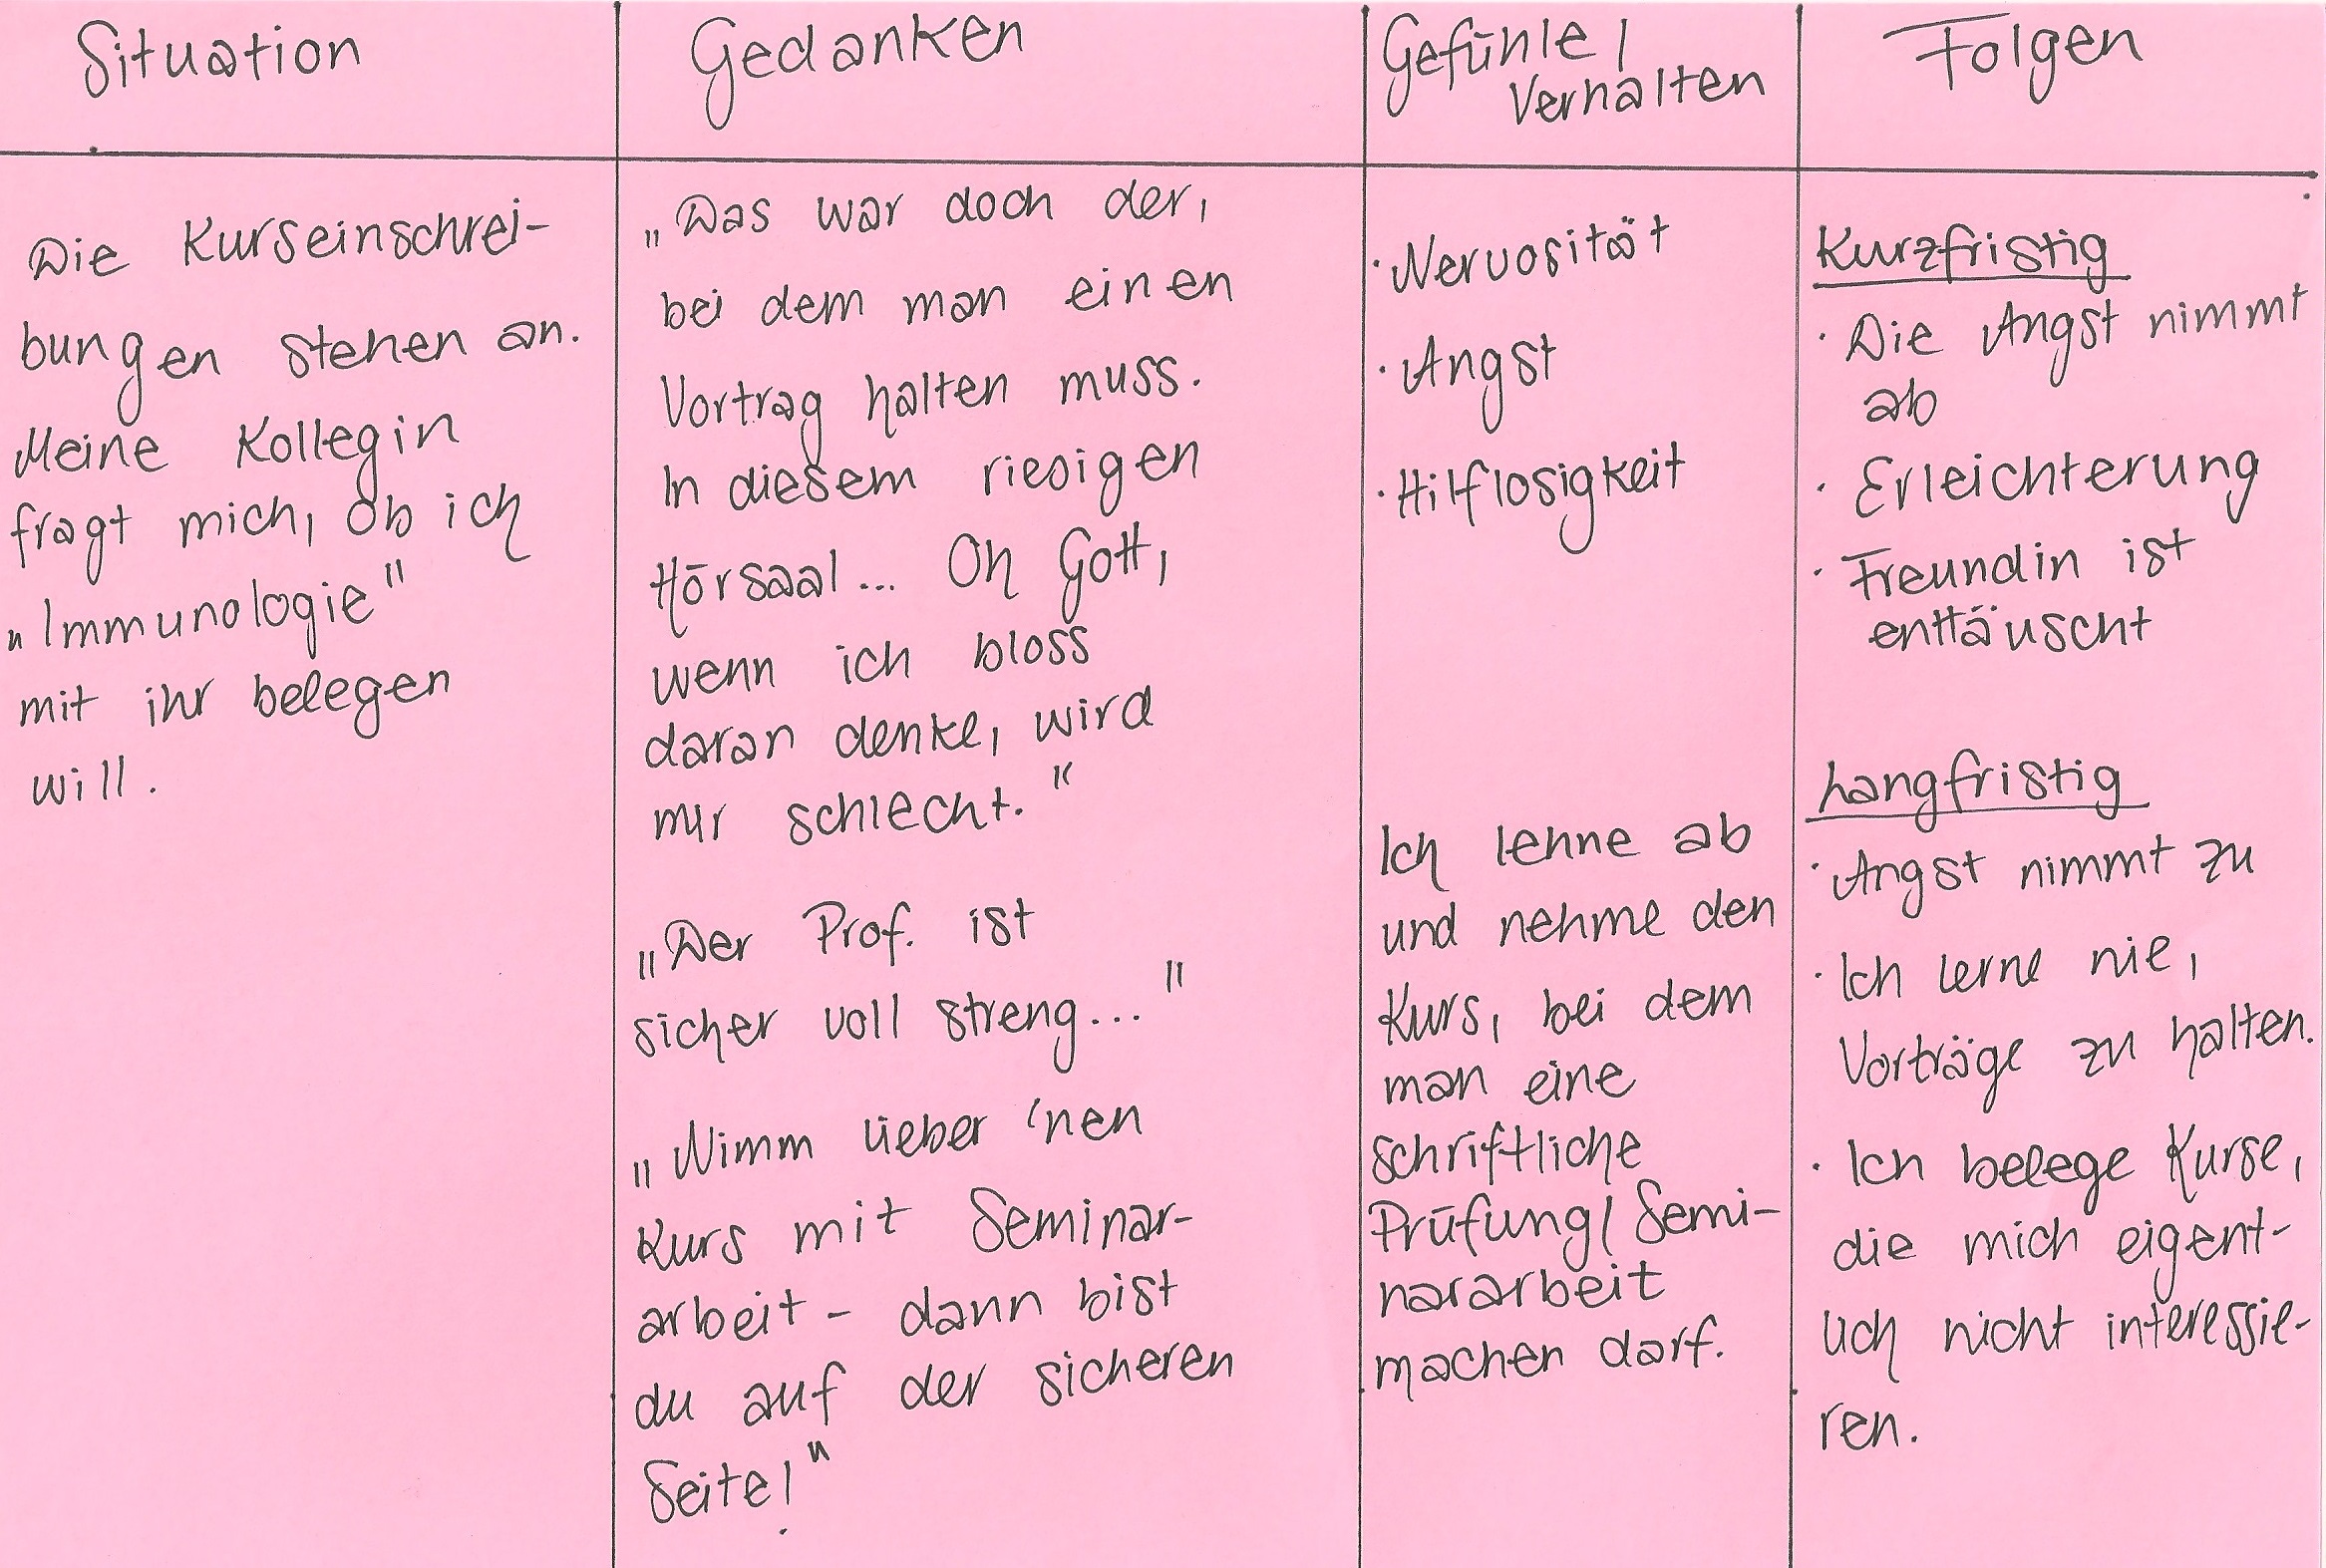 Situation
Gedanken
Gefühle /
Verhalten
Folgen
Die Kurseinschrei-
bungen stehen an.
Meine Kollegin
fragt mich, ob ich
„Immunologie"
mit ihr belegen
will.
„Das war doch der,
bei dem man einen
Vortrag halten muss.
In diesem riesigen
Hörsaal... Oh Gott,
wenn ich bloss
daran denke, wird
mir schlecht."
„Der Prof. ist
sicher voll streng..."
„Nimm lieber 'nen
Kurs mit Seminar-
arbeit - dann bist
du auf der sicheren
Seite!"
· Nervosität
· Angst
· Hilflosigkeit
Ich lehne ab
und nehme den
Kurs, bei dem
man eine
schriftliche
Prüfung/Semi-
nararbeit
machen darf.
Kurzfristig
· Die Angst nimmt
ab
· Erleichterung
· Freundin ist
enttäuscht
Langfristig
· Angst nimmt zu
· Ich lerne nie,
Vorträge zu halten.
· Ich belege Kurse,
die mich eigent-
lich nicht interessie-
ren.